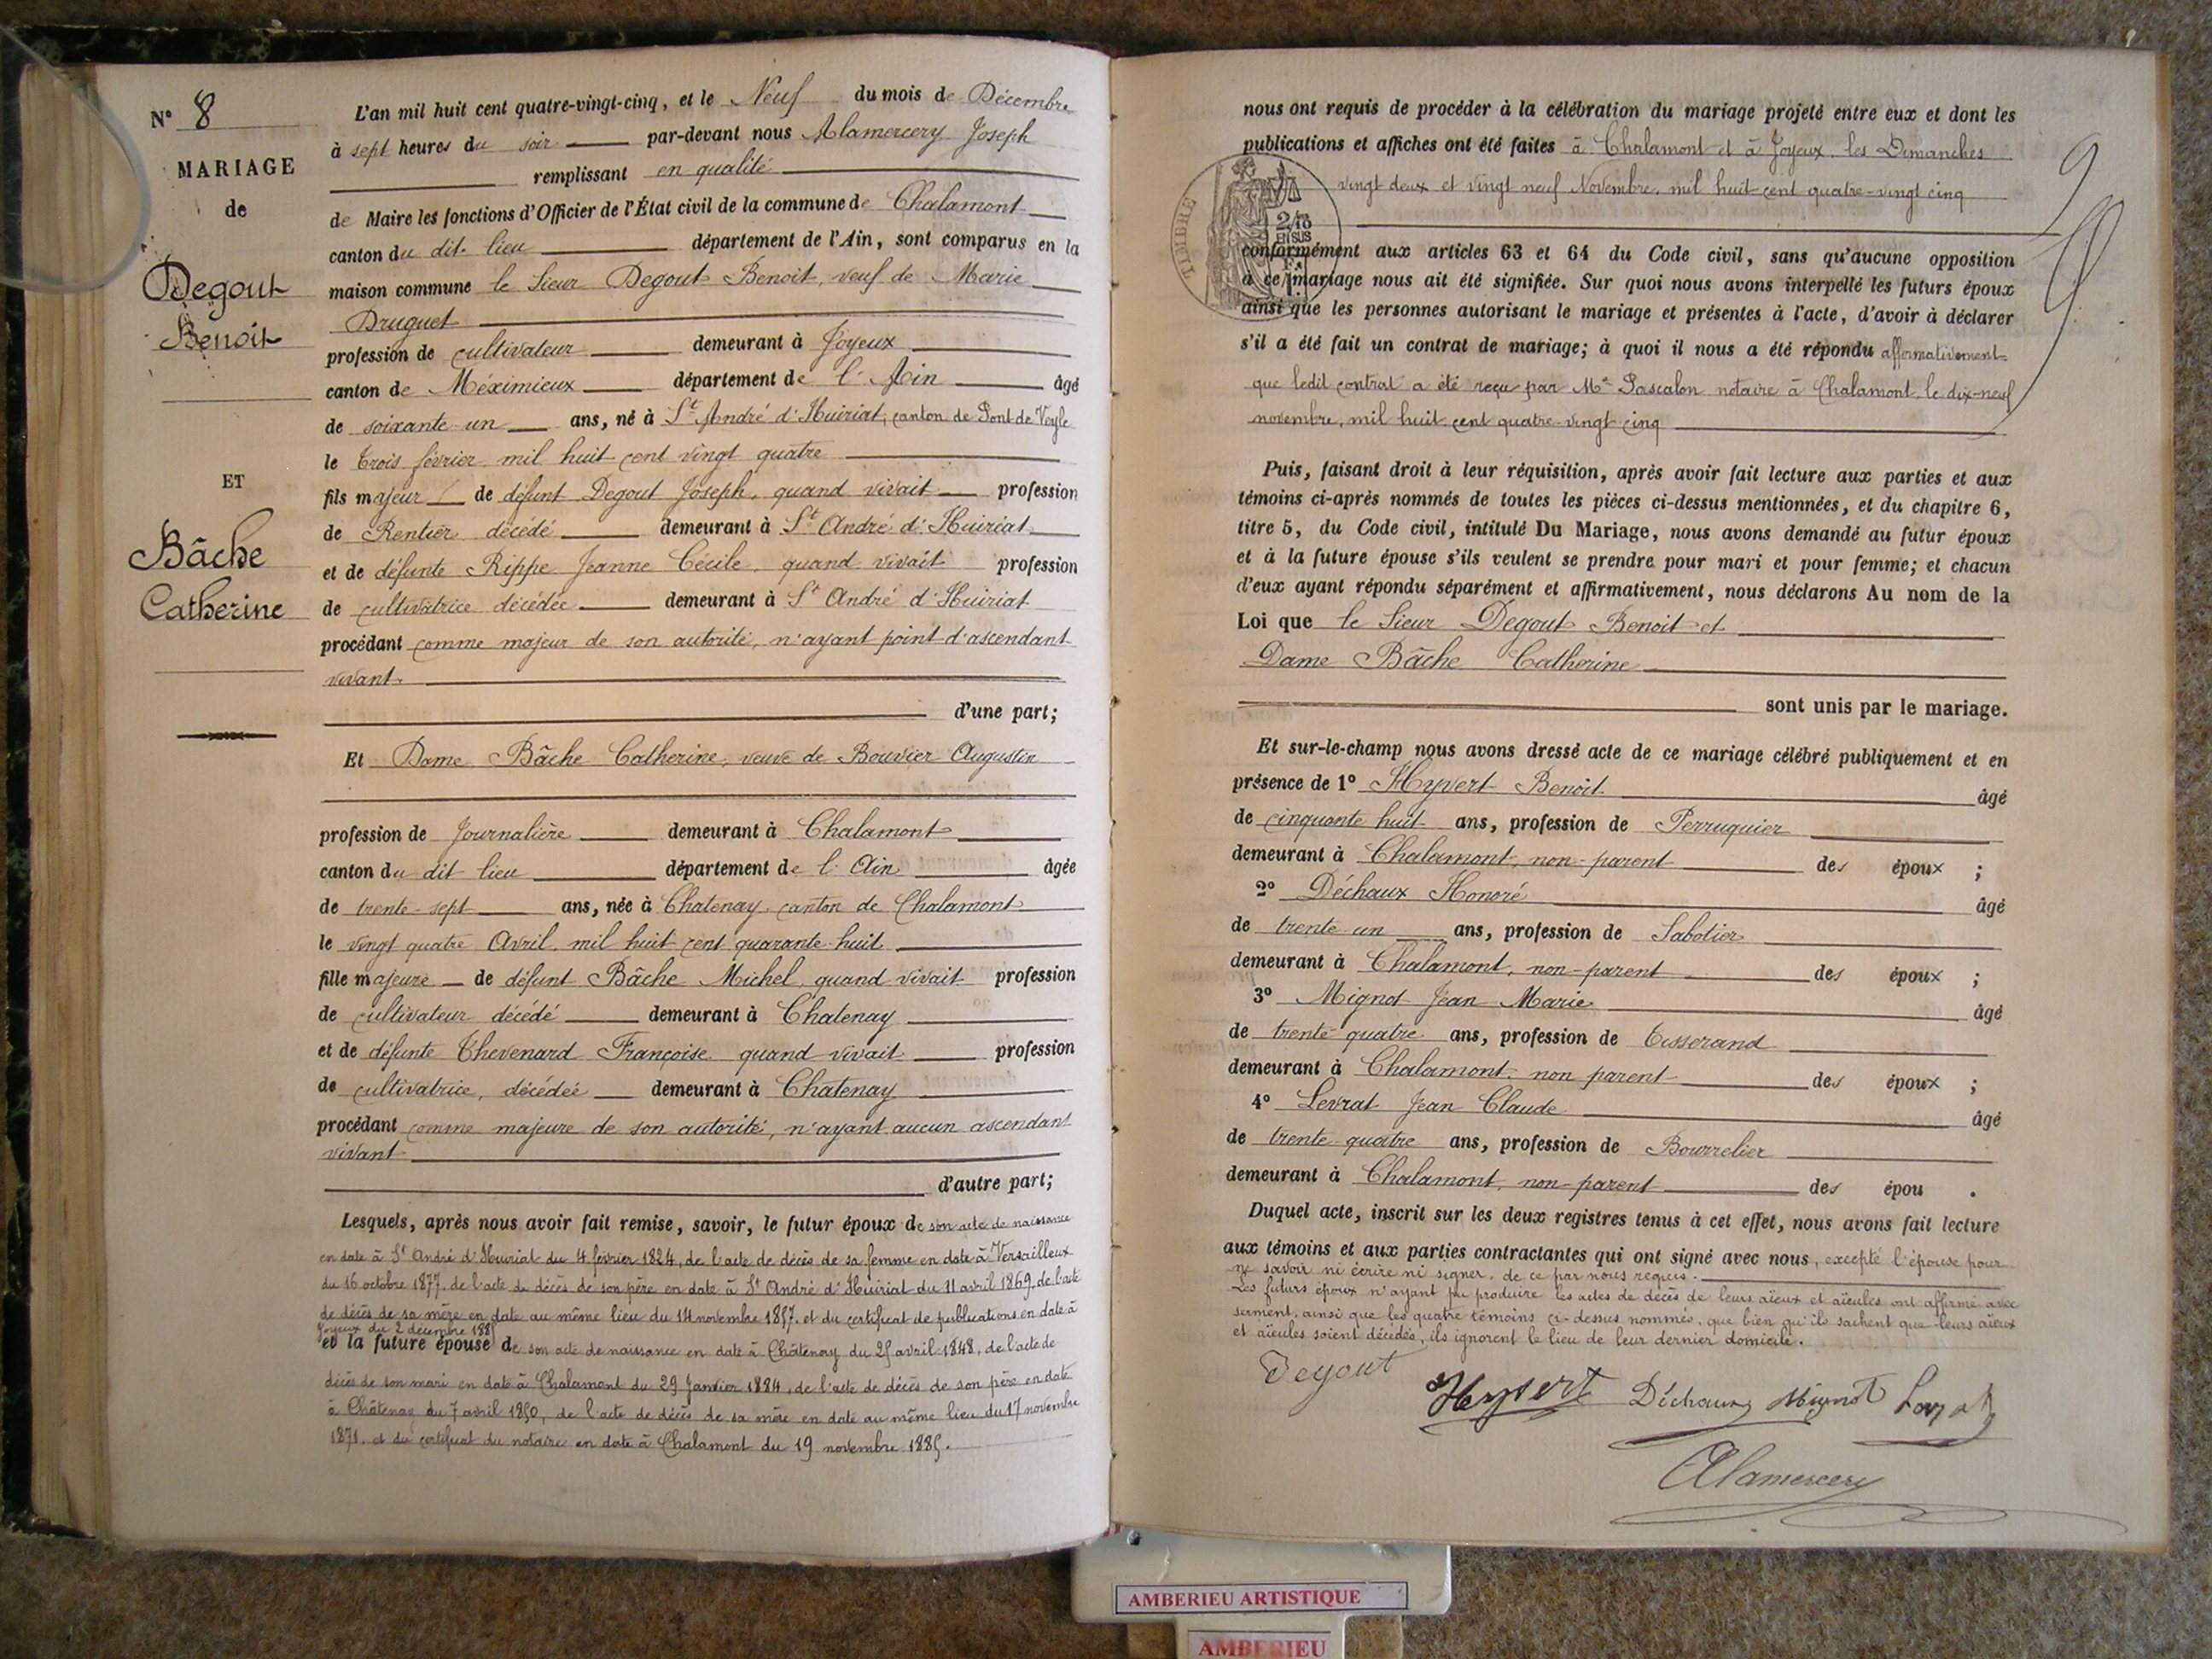 N° 8
MARIAGE
de
Degout
Benoit
ET
Bâche
Catherine
L'an mil huit cent quatre-vingt-cinq, et le Neuf du mois de Décembre
à sept heures du soir par-devant nous Alamercery Joseph
remplissant en qualité
de Maire les fonctions d'Officier de l'État civil de la commune de Chalamont
canton du dit lieu département de l'Ain, sont comparus en la
maison commune le Sieur Degout Benoit, veuf de Marie
Druguet
profession de cultivateur demeurant à Joyeux
canton de Méximieux département de l'Ain âgé
de soixante un ans, né à St André d'Huiriat, canton de Pont de Veyle
le trois février mil huit cent vingt quatre
fils majeur de défunt Degout Joseph, quand vivait profession
de Rentier décédé demeurant à St André d'Huiriat
et de défunte Rippe Jeanne Cécile, quand vivait profession
de cultivatrice décédée demeurant à St André d'Huiriat
procédant comme majeur de son autorité, n'ayant point d'ascendant
vivant
d'une part;
Et Dame Bâche Catherine, veuve de Bouvier Augustin
profession de Journalière demeurant à Chalamont
canton du dit lieu département de l'Ain âgée
de trente-sept ans, née à Chatenay, canton de Chalamont
le vingt quatre Avril mil huit cent quarante huit
fille majeure de défunt Bâche Michel, quand vivait profession
de cultivateur décédé demeurant à Chatenay
et de défunte Thevenard Françoise quand vivait profession
de cultivatrice, décédée demeurant à Chatenay
procédant comme majeure de son autorité, n'ayant aucun ascendant
vivant
d'autre part;
Lesquels, après nous avoir fait remise, savoir, le futur époux de son acte de naissance
en date à St André d'Huiriat du 4 février 1824, de l'acte de décès de sa femme en date à Versailleux
du 16 octobre 1877, de l'acte de décès de son père en date à St André d'Huiriat du 11 avril 1869, de l'acte
de décès de sa mère en date au même lieu du 14 novembre 1857, et du certificat de publications en date à
Joyeux du 2 décembre 1885
et la future épouse de son acte de naissance en date à Châtenay du 25 avril 1848, de l'acte de
décès de son mari en date à Chalamont du 29 Janvier 1884, de l'acte de décès de son père en date
à Châtenay du 7 avril 1850, de l'acte de décès de sa mère en date au même lieu du 17 novembre
1871, et du certificat du notaire en date à Chalamont du 19 novembre 1885.
nous ont requis de procéder à la célébration du mariage projeté entre eux et dont les
publications et affiches ont été faites à Chalamont et à Joyeux, les Dimanches
vingt deux et vingt neuf Novembre, mil huit cent quatre-vingt cinq
TIMBRE
2/10
EN SUS
conformément aux articles 63 et 64 du Code civil, sans qu'aucune opposition
à ce mariage nous ait été signifiée. Sur quoi nous avons interpellé les futurs époux
ainsi que les personnes autorisant le mariage et présentes à l'acte, d'avoir à déclarer
s'il a été fait un contrat de mariage; à quoi il nous a été répondu affirmativement
que ledit contrat a été reçu par Me Pascalon notaire à Chalamont le dix-neuf
novembre, mil huit cent quatre-vingt cinq
Puis, faisant droit à leur réquisition, après avoir fait lecture aux parties et aux
témoins ci-après nommés de toutes les pièces ci-dessus mentionnées, et du chapitre 6,
titre 5, du Code civil, intitulé Du Mariage, nous avons demandé au futur époux
et à la future épouse s'ils veulent se prendre pour mari et pour femme; et chacun
d'eux ayant répondu séparément et affirmativement, nous déclarons Au nom de la
Loi que le Sieur Degout Benoit et
Dame Bâche Catherine
sont unis par le mariage.
Et sur-le-champ nous avons dressé acte de ce mariage célébré publiquement et en
présence de 1° Hyvert Benoit âgé
de cinquante huit ans, profession de Perruquier
demeurant à Chalamont, non-parent des époux ;
2° Déchaux Honoré âgé
de trente un ans, profession de Sabotier
demeurant à Chalamont, non-parent des époux ;
3° Mignot Jean Marie âgé
de trente quatre ans, profession de Tisserand
demeurant à Chalamont, non parent des époux ;
4° Levrat Jean Claude âgé
de trente quatre ans, profession de Bourrelier
demeurant à Chalamont, non-parent des épou .
Duquel acte, inscrit sur les deux registres tenus à cet effet, nous avons fait lecture
aux témoins et aux parties contractantes qui ont signé avec nous, excepté l'épouse pour
ne savoir ni écrire ni signer, de ce par nous requis.
Les futurs époux n'ayant pu produire les actes de décès de leurs aïeux et aïeules ont affirmé avec
serment, ainsi que les quatre témoins ci-dessus nommés, que bien qu'ils sachent que leurs aïeux
et aïeules soient décédés, ils ignorent le lieu de leur dernier domicile.
Degout
Hyvert Déchaux Mignot Levrat
Alamercery
AMBERIEU ARTISTIQUE
AMBERIEU